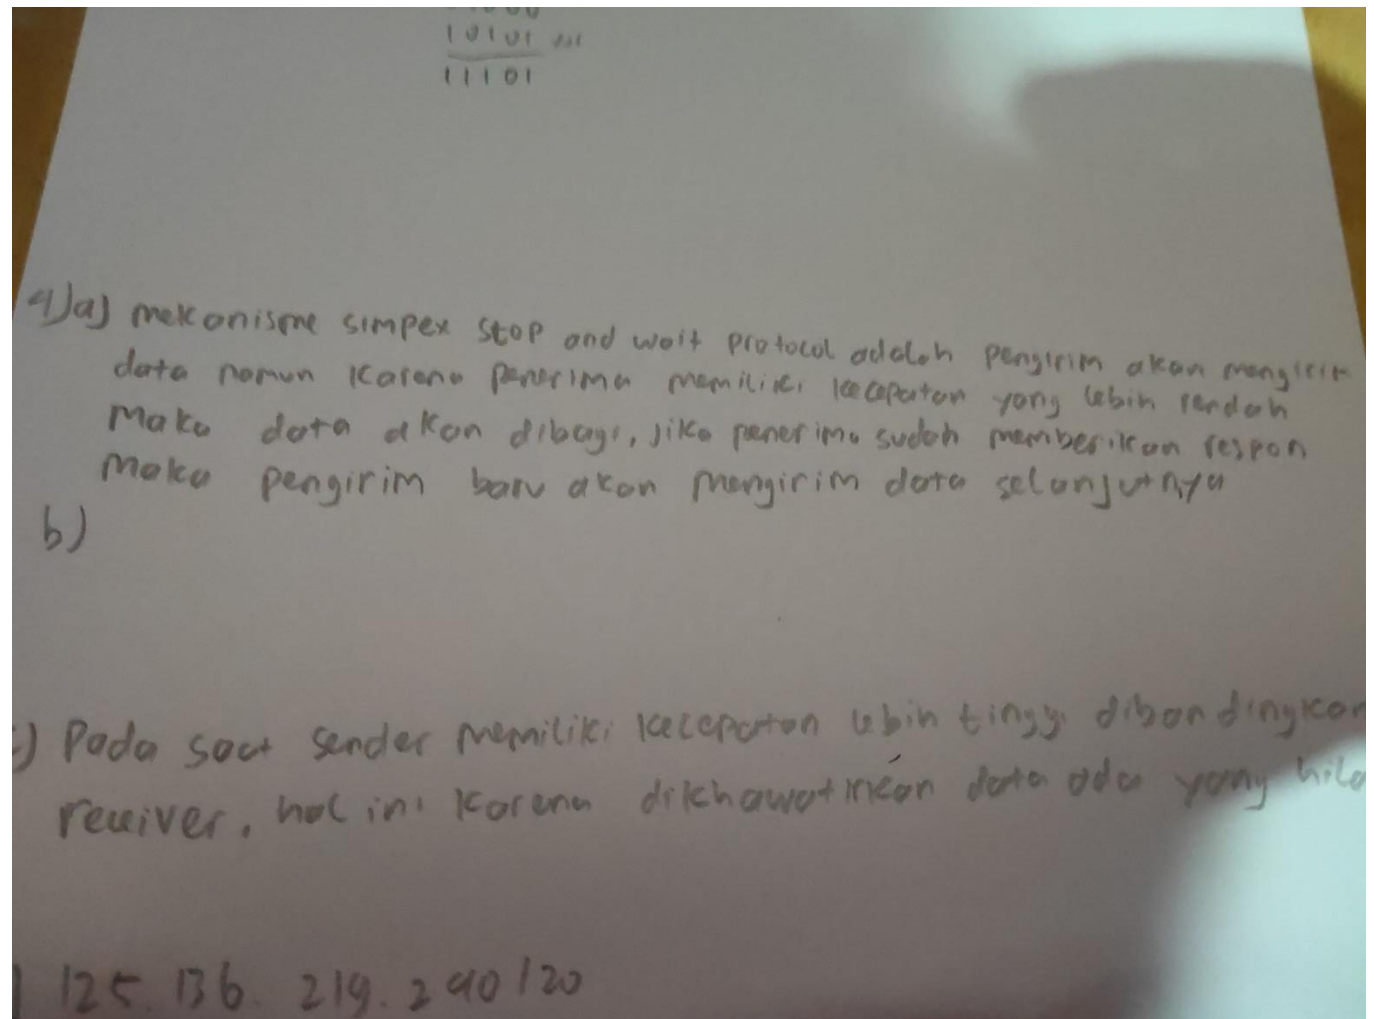 10101
11101
4)a) mekanisme simpex stop and wait protocol adalah pengirim akan mengirim
data namun karena penerima memiliki kecepatan yang lebih rendah
maka data akan dibagi, jika penerima sudah memberikan respon
maka pengirim baru akan mengirim data selanjutnya
b)
c) Pada saat sender memiliki kecepatan lebih tinggi dibandingkan
receiver, hal ini karena dikhawatirkan data ada yang hila
125.136.219.240/20